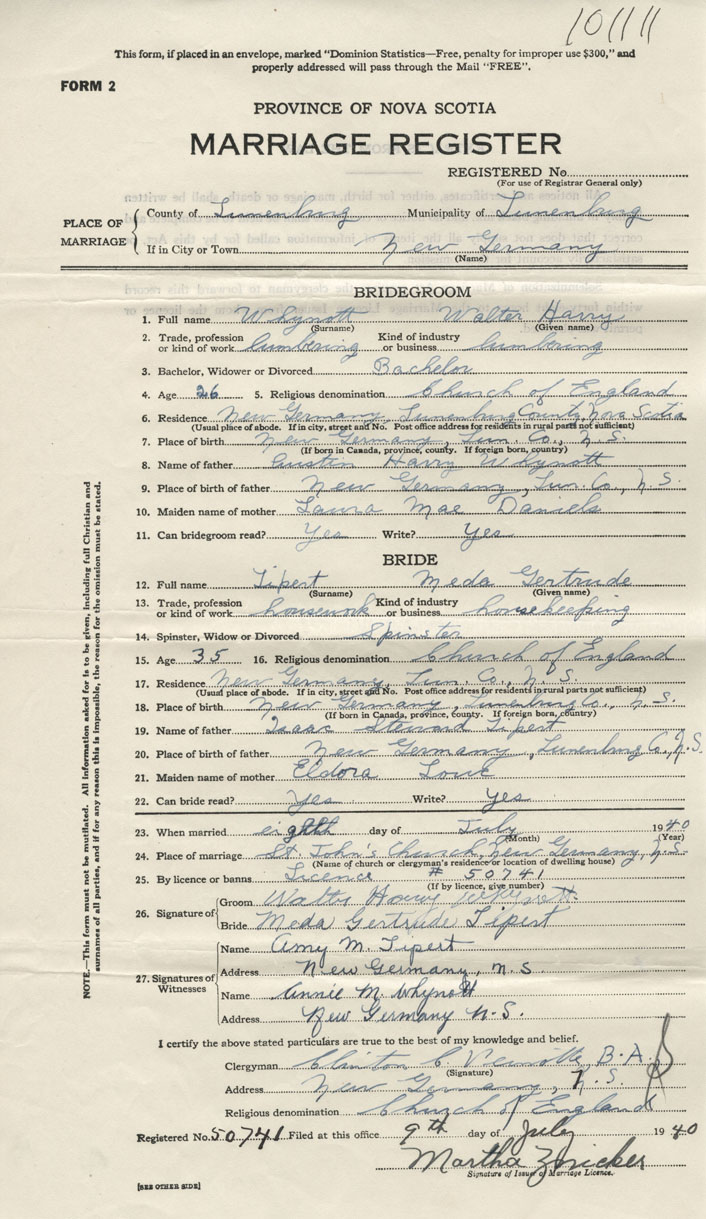 10111
This form, if placed in an envelope, marked "Dominion Statistics—Free, penalty for improper use $300," and
properly addressed will pass through the Mail "FREE".
FORM 2
PROVINCE OF NOVA SCOTIA
MARRIAGE REGISTER
REGISTERED No.
(For use of Registrar General only)
PLACE OF MARRIAGE
County of Lunenburg Municipality of Lunenburg
If in City or Town New Germany
(Name)
BRIDEGROOM
1. Full name Whynott Walter Harry
(Surname) (Given name)
2. Trade, profession or kind of work lumbering Kind of industry or business lumbering
3. Bachelor, Widower or Divorced Bachelor
4. Age 26 5. Religious denomination Church of England
6. Residence New Germany, Lunenburg County, Nova Scotia
(Usual place of abode. If in city, street and No. Post office address for residents in rural parts not sufficient)
7. Place of birth New Germany, Lun. Co., N.S.
(If born in Canada, province, county. If foreign born, country)
8. Name of father Austin Harry Whynott
9. Place of birth of father New Germany, Lun. Co., N.S.
10. Maiden name of mother Laura Mae Daniels
11. Can bridegroom read? Yes Write? Yes
BRIDE
12. Full name Tipert Meda Gertrude
(Surname) (Given name)
13. Trade, profession or kind of work housework Kind of industry or business housekeeping
14. Spinster, Widow or Divorced Spinster
15. Age 35 16. Religious denomination Church of England
17. Residence New Germany, Lun. Co., N.S.
(Usual place of abode. If in city, street and No. Post office address for residents in rural parts not sufficient)
18. Place of birth New Germany, Lunenburg Co., N.S.
(If born in Canada, province, county. If foreign born, country)
19. Name of father Isaac Tipert
20. Place of birth of father New Germany, Lunenburg Co., N.S.
21. Maiden name of mother Eldora
22. Can bride read? Yes Write? Yes
23. When married eighth day of July 1940
(Month) (Year)
24. Place of marriage St. John's Church, New Germany, N.S.
(Name of church or clergyman's residence or location of dwelling house)
25. By licence or banns Licence # 50741
(If by licence, give number)
26. Signature of
Groom Walter Harry Whynott
Bride Meda Gertrude Tipert
27. Signatures of Witnesses
Name Amy M. Tipert
Address New Germany, N.S.
Name Annie M. Whynott
Address New Germany N.S.
I certify the above stated particulars are true to the best of my knowledge and belief.
Clergyman Clinton C. B.A.
(Signature)
Address New Germany, N.S.
Religious denomination Church of England
Registered No. 50741 Filed at this office 9th day of July 1940
Martha Zwicker
Signature of Issuer of Marriage Licence.
[SEE OTHER SIDE]
NOTE.—This form must not be mutilated. All information asked for is to be given, including full Christian and
surnames of all parties, and if for any reason this is impossible, the reason for the omission must be stated.